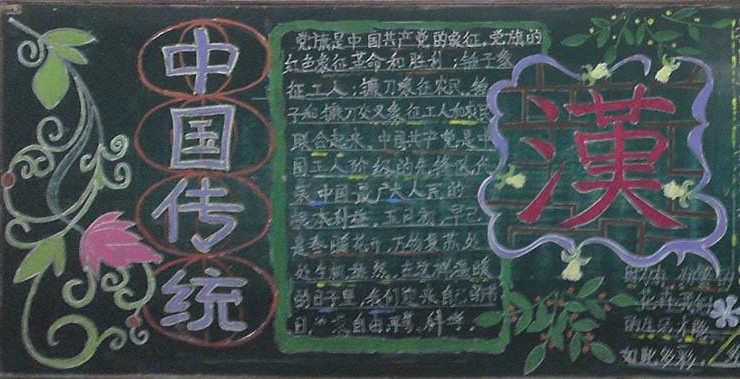 中国传统
党旗是中国共产党的象征,党旗的
红色象征革命和胜利;锤子象
征工人;镰刀象征农民,锤
子和镰刀交叉象征工人和农民
联合起来,中国共产党是中
国工人阶级的先锋队,代
表中国最广大人民的
根本利益,五月初,早已
是春暖花开,万物复苏,处
处生机盎然,在这样温暖
的日子里,我们迎来自己的节
日,自由,平等,科学。
漢
的生活才能
如此多彩